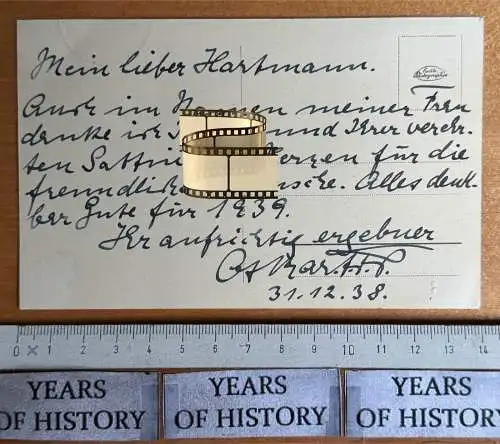 Mein lieber Hartmann.
Auch im Namen meiner Frau
danke ich und Ihrer verehr-
ten Gattin Herzen für die
freundlich nsche. Alles denk-
bar Gute für 1939.
Ihr aufrichtig ergebner
31.12.38.
0 1 2 3 4 5 6 7 8 9 10 11 12 13 14
YEARS OF HISTORY
YEARS OF HISTORY
YEARS OF HISTORY